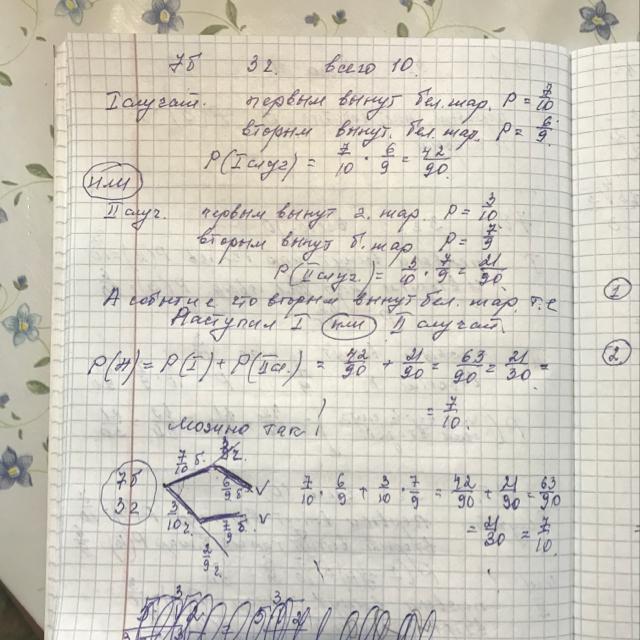 7б 3ч. всего 10.
I случай. первым вынут бел. шар. P = 7/10
вторым вынут. бел. шар. P = 6/9
P(I случ) = 7/10 · 6/9 = 42/90
или
II случ. первым вынут ч. шар. P = 3/10
вторым вынут б. шар P = 7/9
P(II случ.) = 3/10 · 7/9 = 21/90
А событие что вторым вынут бел. шар. т.е
Наступил I или II случай.
P(A) = P(I) + P(II сл.) = 42/90 + 21/90 = 63/90 = 21/30 =
= 7/10.
Можно так
7б 3ч
7/10 б. ч.
6/9 б. v
3/10 ч. 7/9 б. v
2/9 ч.
7/10 · 6/9 + 3/10 · 7/9 = 42/90 + 21/90 = 63/90
= 21/30 = 7/10.
1
2